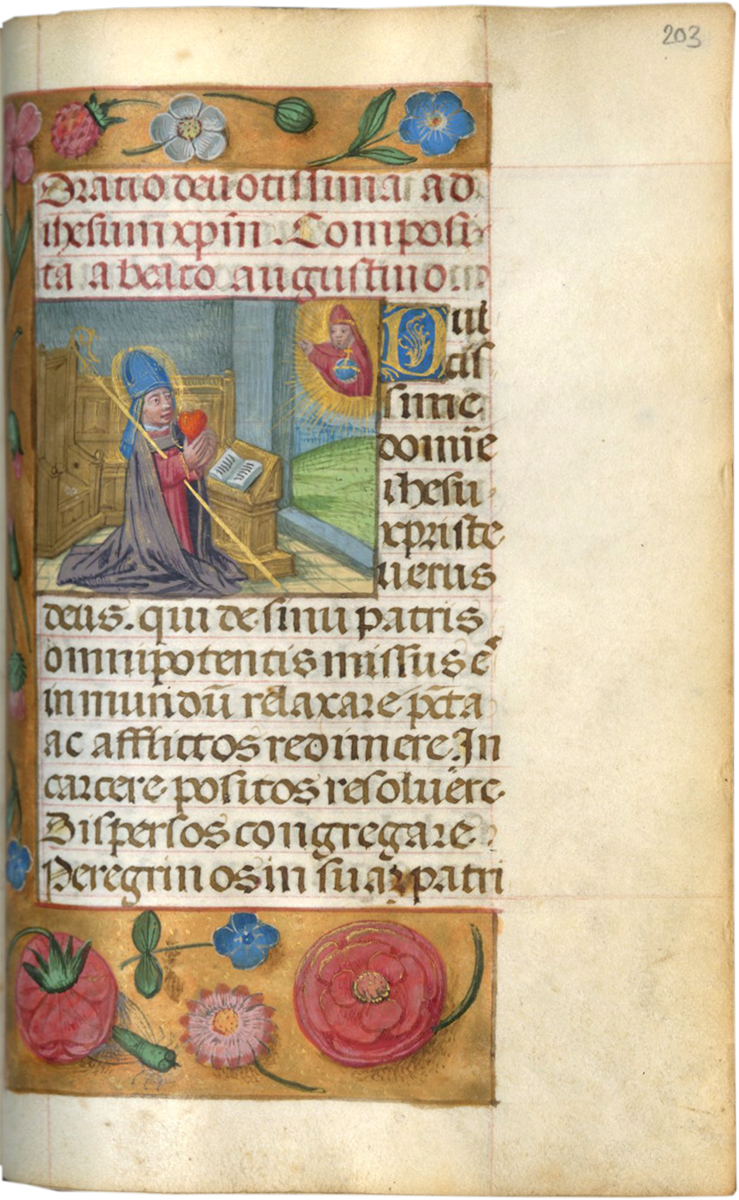 203
Oratio deuotissima ad
ihesum xp̄m. Composi
ta a beato augustino
Dul
cis
sime
domīe
ihesu
xpriste
uerus
deus. qui de sinu patris
omnipotentis missus es
in mundū relaxare pc̄ta
ac afflictos redimere. In
carcere positos resoluere
Dispersos congregare
Peregrinos in suaꝝ patri